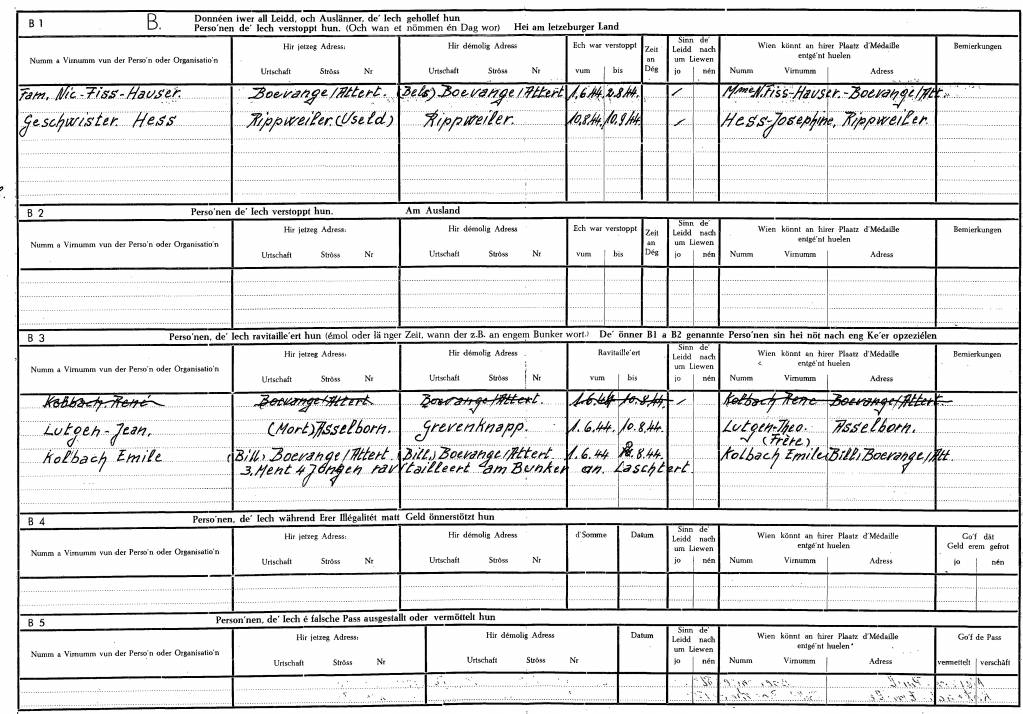 B 1 B. Donnéen iwer all Leidd, och Auslänner, de' Iech gehollef hun
Perso'nen de' Iech verstoppt hun. (Och wan et nömmen én Dag wor) Hei am letzeburger Land
Numm a Virnumm vun der Perso'n oder Organisatio'n Hir jetzeg Adress: Hir démolig Adress Ech war verstoppt Zeit an Dég Sinn de' Leidd nach um Liewen Wien könnt an hirer Plaatz d'Médaille entgé'nt huelen Bemierkungen
Urtschaft Ströss Nr Urtschaft Ströss Nr vum bis jo nén Numm Virnumm Adress
Fam. Nic-Fiss-Hauser. Boevange/Attert. (Bels) Boevange/Attert 1.6.44. 2.8.44. / Mme N. Fiss-Hauser.-Boevange/Att.
Geschwister Hess Rippweiler (Useld) Rippweiler. 10.8.44. 10.9.44. / Hess-Josephine, Rippweiler.
B 2 Perso'nen de' Iech verstoppt hun. Am Ausland
Numm a Virnumm vun der Perso'n oder Organisatio'n Hir jetzeg Adress: Hir démolig Adress Ech war verstoppt Zeit an Dég Sinn de' Leidd nach um Liewen Wien könnt an hirer Plaatz d'Médaille entgé'nt huelen Bemierkungen
Urtschaft Ströss Nr Urtschaft Ströss Nr vum bis jo nén Numm Virnumm Adress
B 3 Perso'nen, de' Iech ravitaille'ert hun (émol oder länger Zeit, wann der z.B. an engem Bunker wort.) De' önner B1 a B2 genannte Perso'nen sin hei nöt nach eng Ke'er opzeziélen
Numm a Virnumm vun der Perso'n oder Organisatio'n Hir jetzeg Adress: Hir démolig Adress Ravitaille'ert Sinn de' Leidd nach um Liewen Wien könnt an hirer Plaatz d'Médaille entgé'nt huelen Bemierkungen
Urtschaft Ströss Nr Urtschaft Ströss Nr vum bis jo nén Numm Virnumm Adress
Kolbach. René Boevange/Attert. Boevange/Attert. 1.6.44 10.8.44. / Kolbach René Boevange/Attert.
Lutgen-Jean. (Mort) Asselborn. Grevenknapp. 1.6.44. 10.8.44. Lutgen-Theo. Asselborn.
(Frère)
Kolbach Emile (Bill) Boevange/Attert. (Bill) Boevange/Attert. 1.6.44 8.44. Kolbach Emile Bill, Boevange/Att.
3. Ment 4 Jongen ravitailleert am Bunker an Laschtert.
B 4 Perso'nen, de' Iech während Erer Illégalitét matt Geld önnerstötzt hun
Numm a Virnumm vun der Perso'n oder Organisatio'n Hir jetzeg Adress: Hir démolig Adress d'Somme Datum Sinn de' Leidd nach um Liewen Wien könnt an hirer Plaatz d'Médaille entgé'nt huelen Go'f dät Geld erem gefrot
Urtschaft Ströss Nr Urtschaft Ströss Nr jo nén Numm Virnumm Adress jo nén
B 5 Person'nen, de' Iech é falsche Pass ausgestallt oder vermöttelt hun
Numm a Virnumm vun der Perso'n oder Organisatio'n Hir jetzeg Adress: Hir démolig Adress Datum Sinn de' Leidd nach um Liewen Wien könnt an hirer Plaatz d'Médaille entgé'nt huelen Go'f de Pass
Urtschaft Ströss Nr Urtschaft Ströss Nr jo nén Numm Virnumm Adress vermettelt verschäft